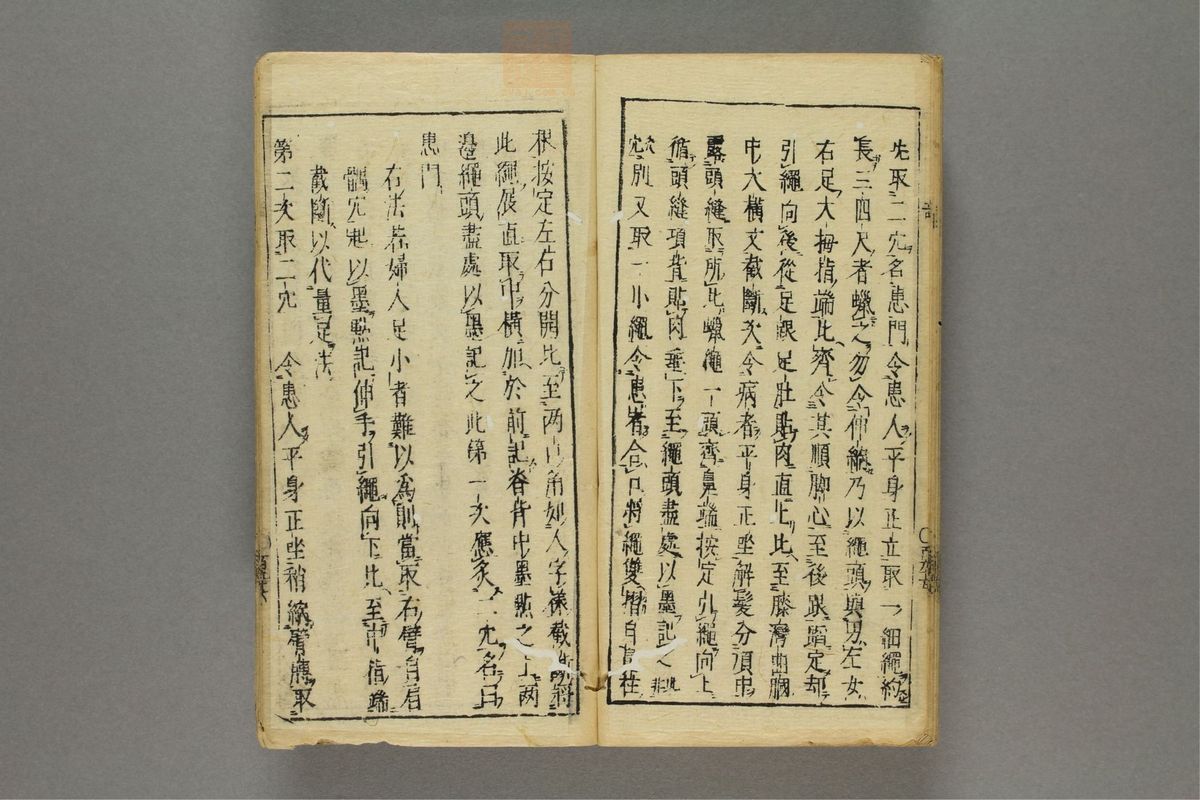 先取二穴名患門令患人平身正立取一細繩約
長三四尺者蠟之勿令伸縮乃以繩頭與男左女
右足大拇指端比齊令其順脚心至後跟踏定却
引繩向後從足跟足肚貼肉直上比至膝灣曲䐐
中大橫文截斷次令病者平身正坐解髮分頂中
露頭縫取所比蠟繩一頭齊鼻端按定引繩向上
循頭縫項背貼肉垂下至繩頭盡處以墨記之此非
灸穴別又取一小繩令患者合口將繩雙摺自
根按定左右分開比至兩口角如人字樣截斷將
此繩展直取中橫加於前記脊背中墨點之上兩
邊繩頭盡處以墨記之此第一次應灸二穴名曰
患門
右法若婦人足小者難以爲則當取右臂自肩
髃穴起以墨點記伸手引繩向下比至中指端
截斷以代量足法
第二次取二穴　令患人平身正坐稍縮臂膊取